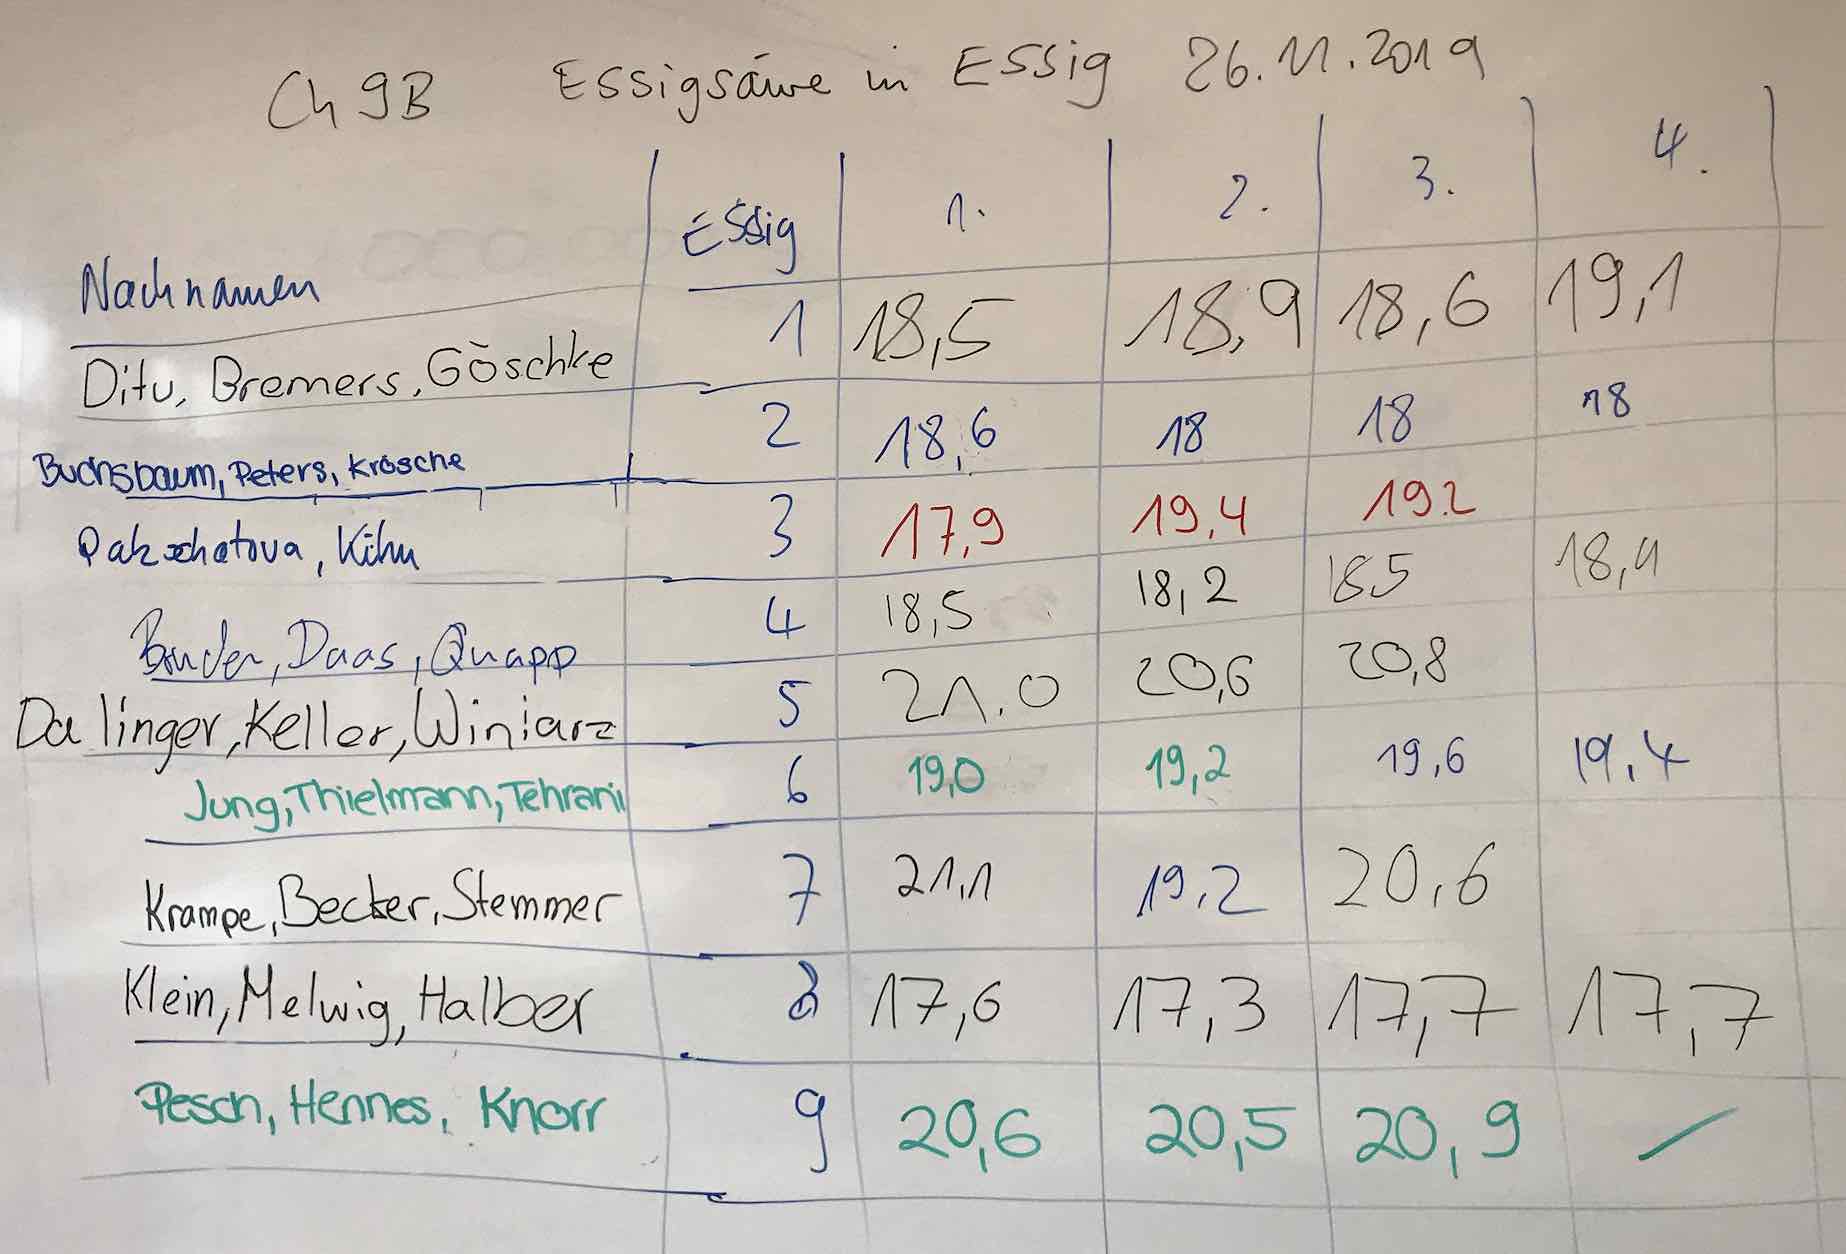 Ch 9B Essigsäure in Essig 26.11.2019
Nachnamen Essig 1. 2. 3. 4.
Ditu, Bremers, Göschke 1 18,5 18,9 18,6 19,1
Buchsbaum, Peters, Krösche 2 18,6 18 18 18
Kihn 3 17,9 19,4 19.2
Daas, Quapp 4 18,5 18,2 185
Dalinger, Keller, Winiarz 5 21.0 20,6 20,8
Jung, Thielmann, Tehrani 6 19,0 19,2 19,6 19,4
Krampe, Becker, Stemmer 7 21,1 19,2 20,6
Klein, Melwig, Halber 8 17,6 17,3 17,7 17,7
Pesch, Hennes, Knorr 9 20,6 20,5 20,9 /